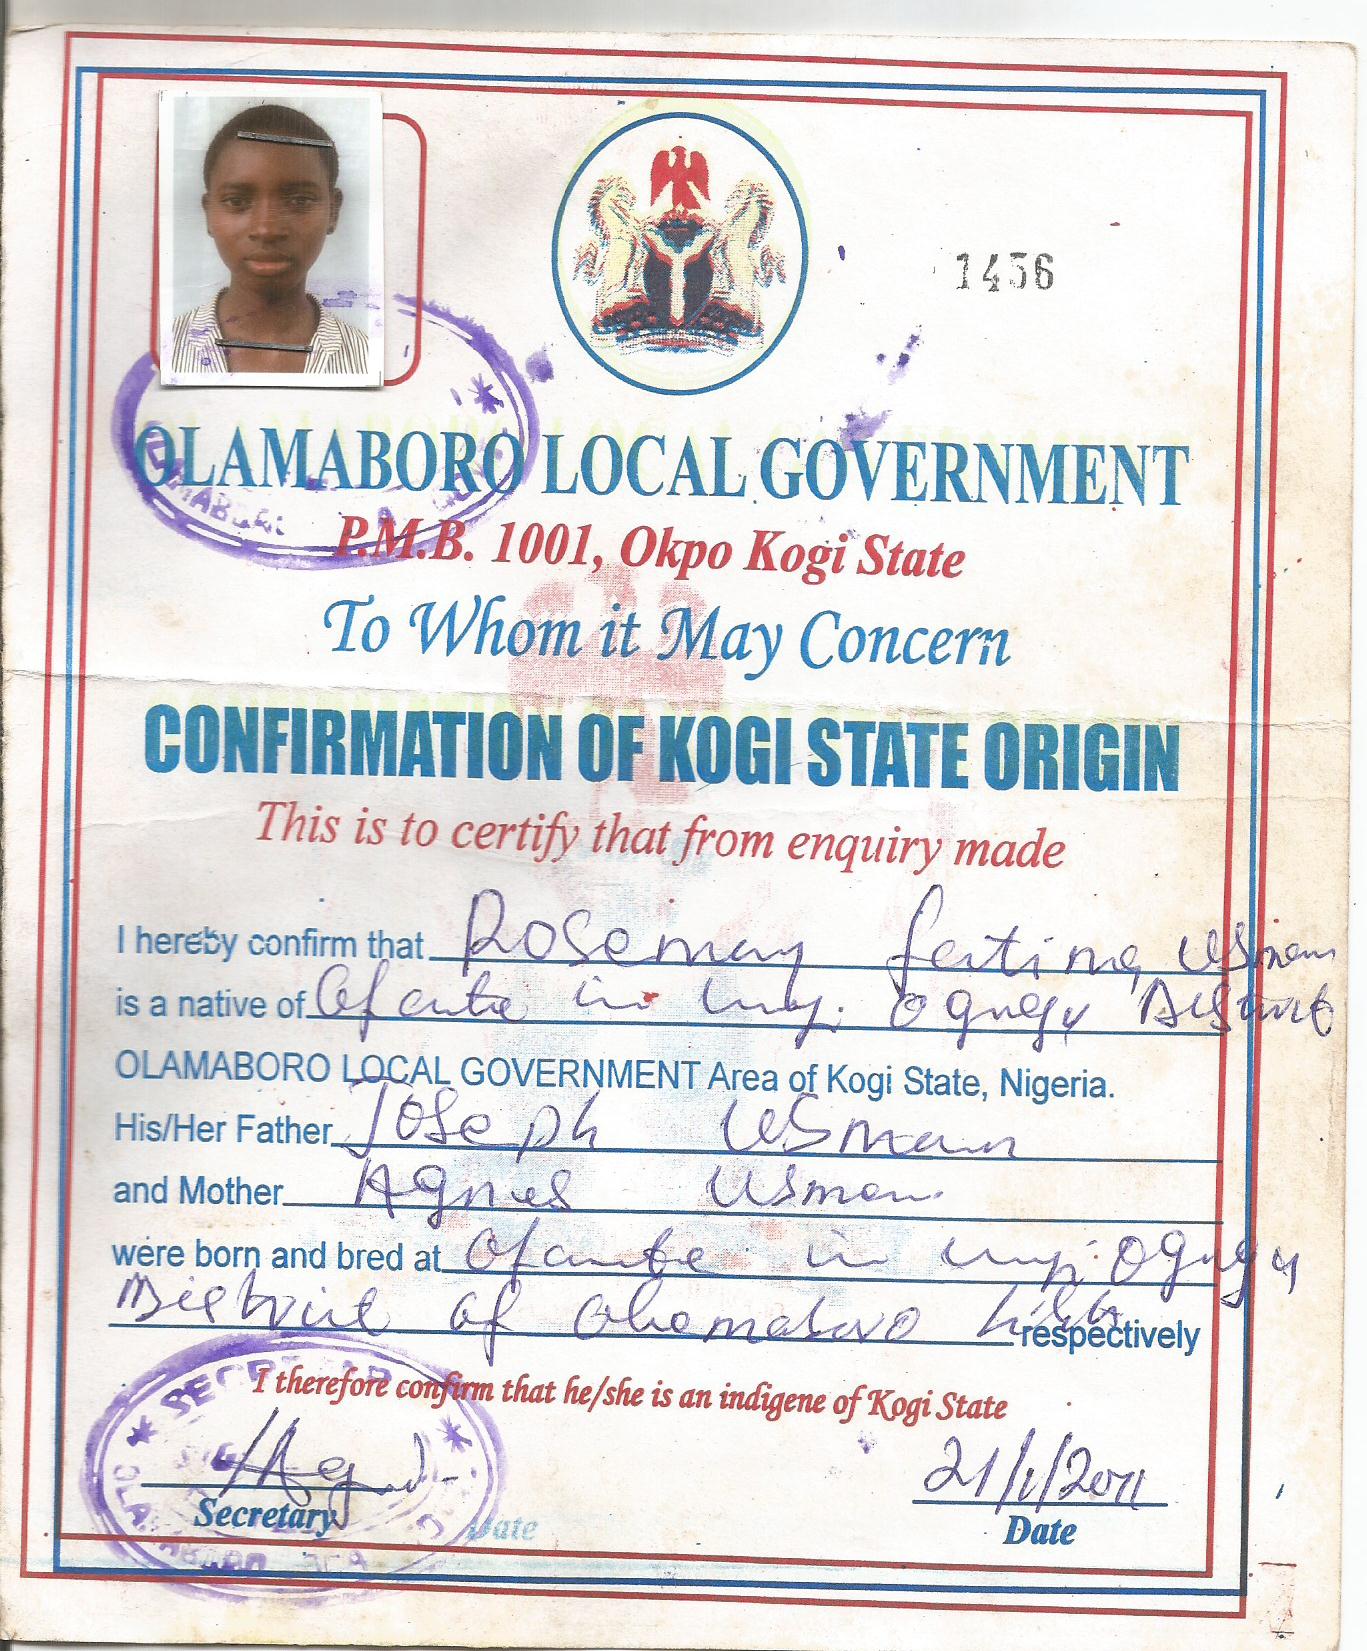 1456
OLAMABORO LOCAL GOVERNMENT
P.M.B. 1001, Okpo Kogi State
To Whom it May Concern
CONFIRMATION OF KOGI STATE ORIGIN
This is to certify that from enquiry made
I hereby confirm that Rosemary Usman
is a native of in Ogugu District
OLAMABORO LOCAL GOVERNMENT Area of Kogi State, Nigeria.
His/Her Father Joseph Usman
and Mother Agnes Usman
were born and bred at in Ogugu
District of respectively
I therefore confirm that he/she is an indigene of Kogi State
21/1/2011
Secretary Date Date